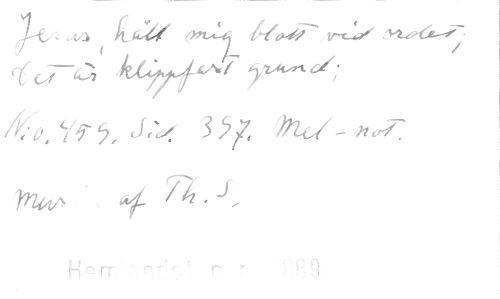 Jesus, håll mig blott vid ordet;
Det är klippfast grund;
N:o. 459. Sid. 397. Mel-not.
af Th. S.